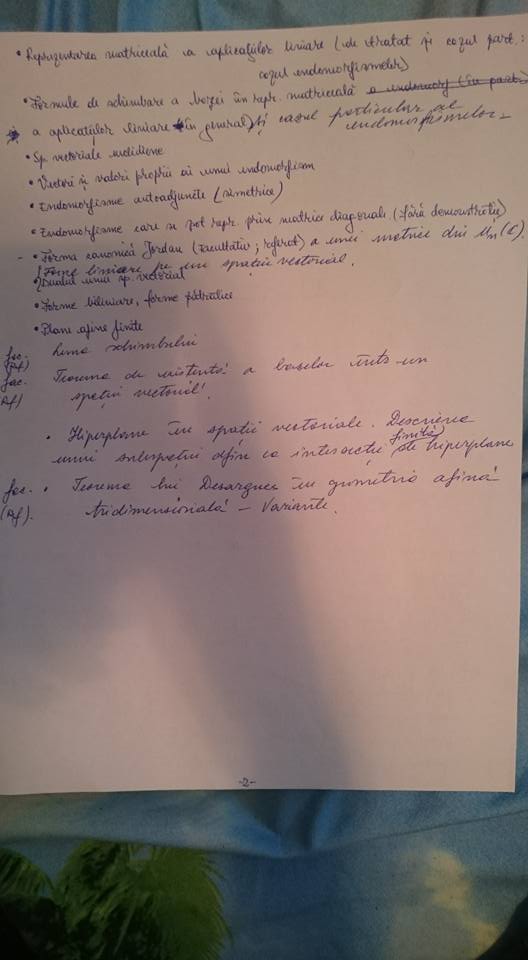 • Reprezentarea matriceală a aplicațiilor liniare (de tratat și cazul part.:
cazul endomorfismelor)
• Formule de schimbare a bazei în repr. matriceală a endomorf (în part.)
a aplicațiilor liniare (în general) și cazul particular al
endomorfismelor
• Sp. vectoriale euclidiene
• Vectori și valori proprii ai unui endomorfism
• Endomorfisme autoadjuncte (simetrice)
• Endomorfisme care se pot repr. prin matrice diagonale (fără demonstrație)
- • Forma canonică Jordan (facultativ; referat) a unei matrice din Mn(C)
Forme liniare pe un spațiu vectorial.
Dualul unui sp. vectorial
• Forme biliniare, forme pătratice
• Plane afine finite
fac. Lema schimbului
(Rf)
fac. Teorema de existență a bazelor într-un
Rf) spațiu vectorial.
• Hiperplane în spații vectoriale. Descrierea
finită
unui subspațiu afin ca intersecție de hiperplane
fac. • Teorema lui Desargues în geometria afină
(Rf). tridimensională – Variante.
-2-